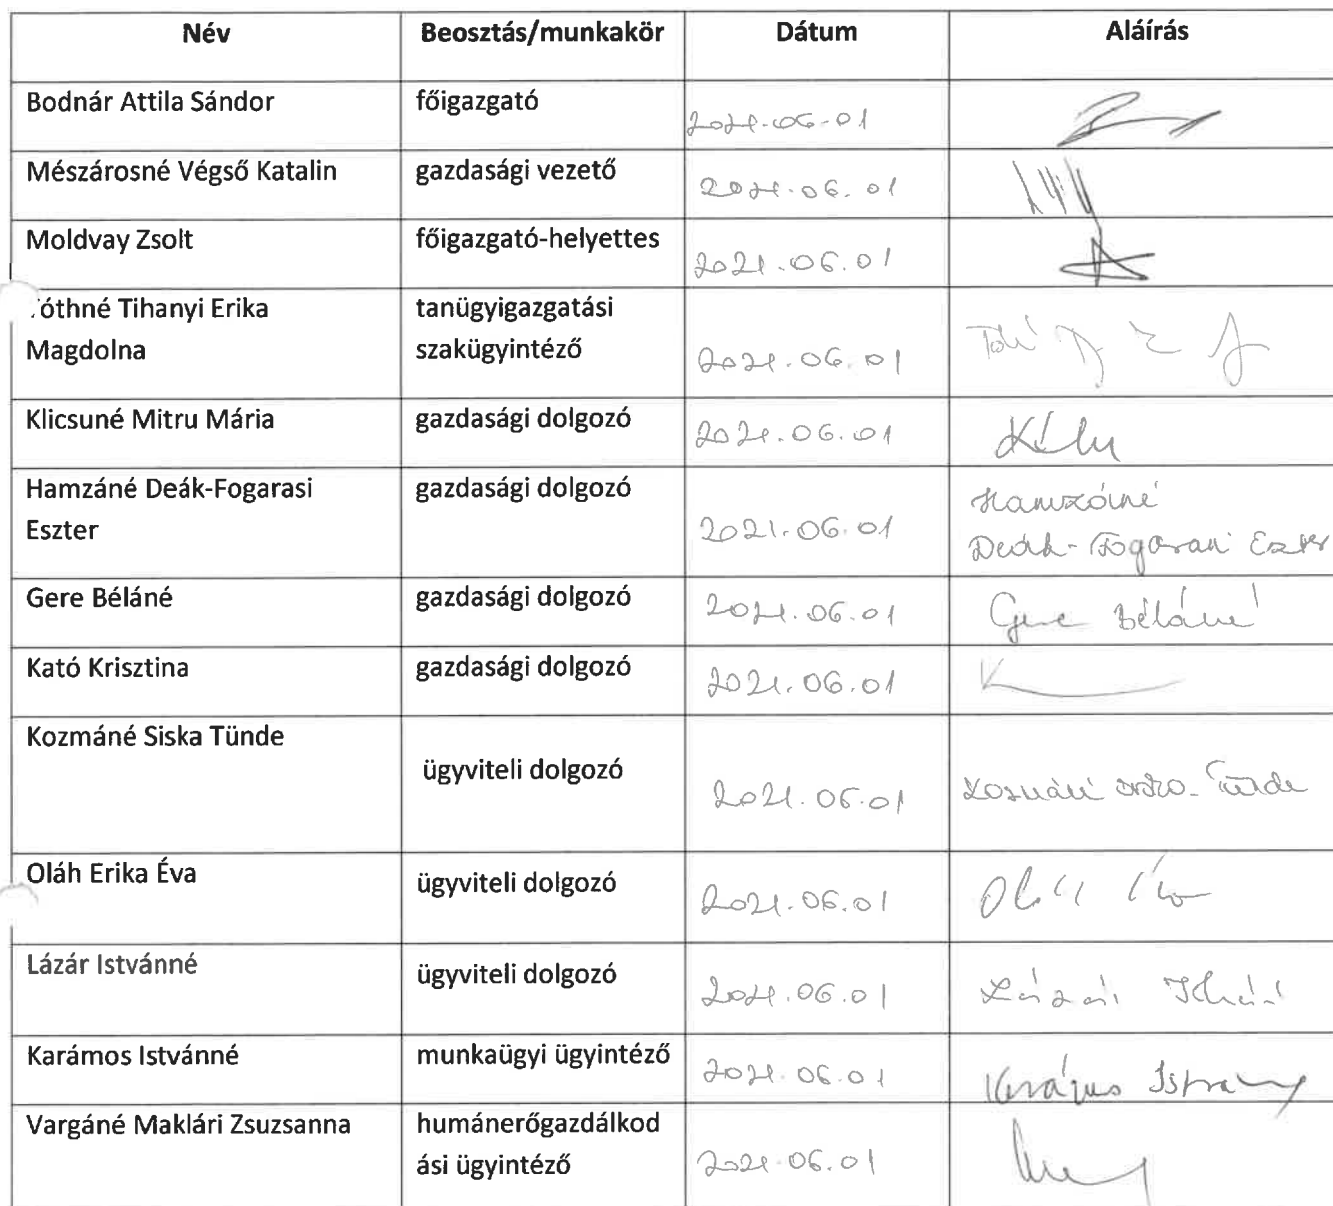 Név Beosztás/munkakör Dátum Aláírás
Bodnár Attila Sándor főigazgató 2021-06-01
Mészárosné Végső Katalin gazdasági vezető 2021.06.01
Moldvay Zsolt főigazgató-helyettes 2021.06.01
óthné Tihanyi Erika tanügyigazgatási
Magdolna szakügyintéző 2021.06.01
Klicsuné Mitru Mária gazdasági dolgozó 2021.06.01
Hamzáné Deák-Fogarasi gazdasági dolgozó Hamzáné
Eszter 2021.06.01 Deák-Fogarasi Eszter
Gere Béláné gazdasági dolgozó 2021.06.01 Gere Béláné
Kató Krisztina gazdasági dolgozó 2021.06.01
Kozmáné Siska Tünde
ügyviteli dolgozó
2021.06.01 Tünde
Oláh Erika Éva ügyviteli dolgozó 2021.06.01 Oláh Éva
Lázár Istvánné ügyviteli dolgozó 2021.06.01 Lázár Istvánné
Karámos Istvánné munkaügyi ügyintéző 2021.06.01
Vargáné Maklári Zsuzsanna humánerőgazdálkod
ási ügyintéző 2021.06.01